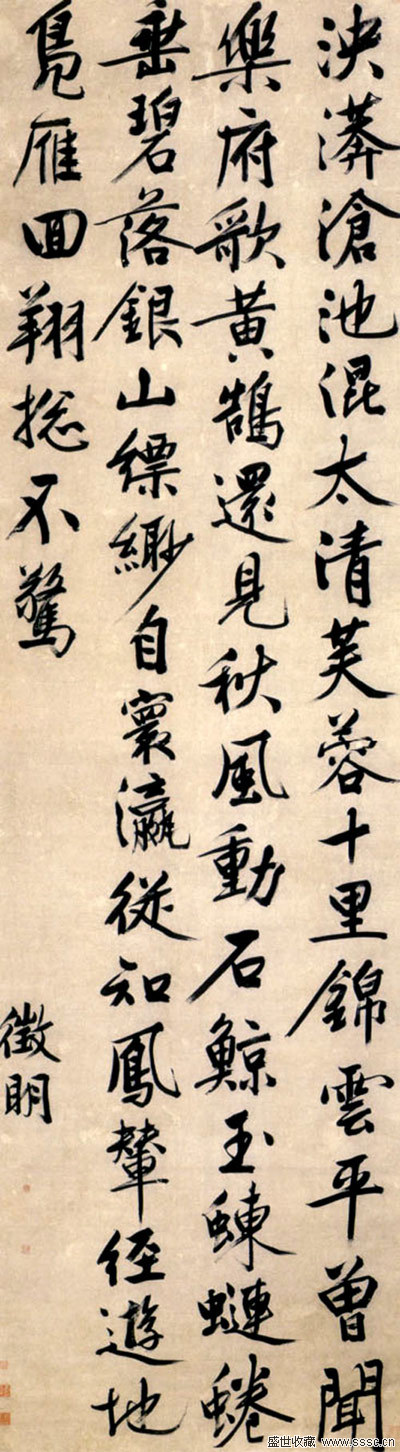 泱漭滄池混太清芙蓉十里錦雲平曾聞
樂府歌黃鵠還見秋風動石鯨玉蝀蜷
垂碧落銀山縹緲自寰瀛從知鳳輦經遊地
鳧雁囬翔捴不驚
徵明
盛世收藏 www.sssc.cn